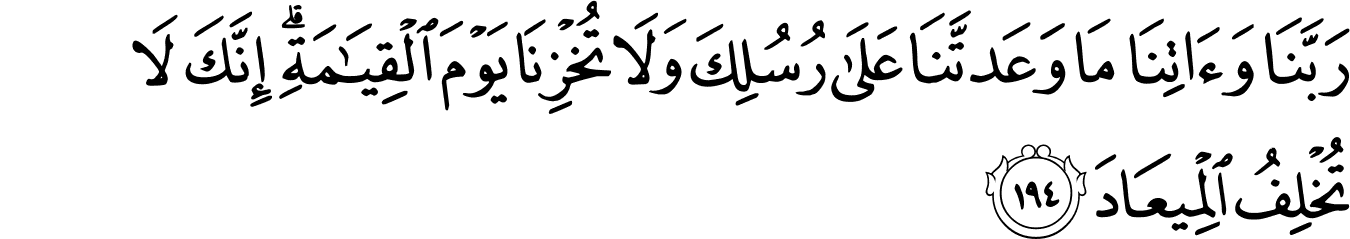 رَبَّنَا وَءَاتِنَا مَا وَعَدتَّنَا عَلَىٰ رُسُلِكَ وَلَا تُخْزِنَا يَوْمَ ٱلْقِيَـٰمَةِ ۗ إِنَّكَ لَا
تُخْلِفُ ٱلْمِيعَادَ ١٩٤